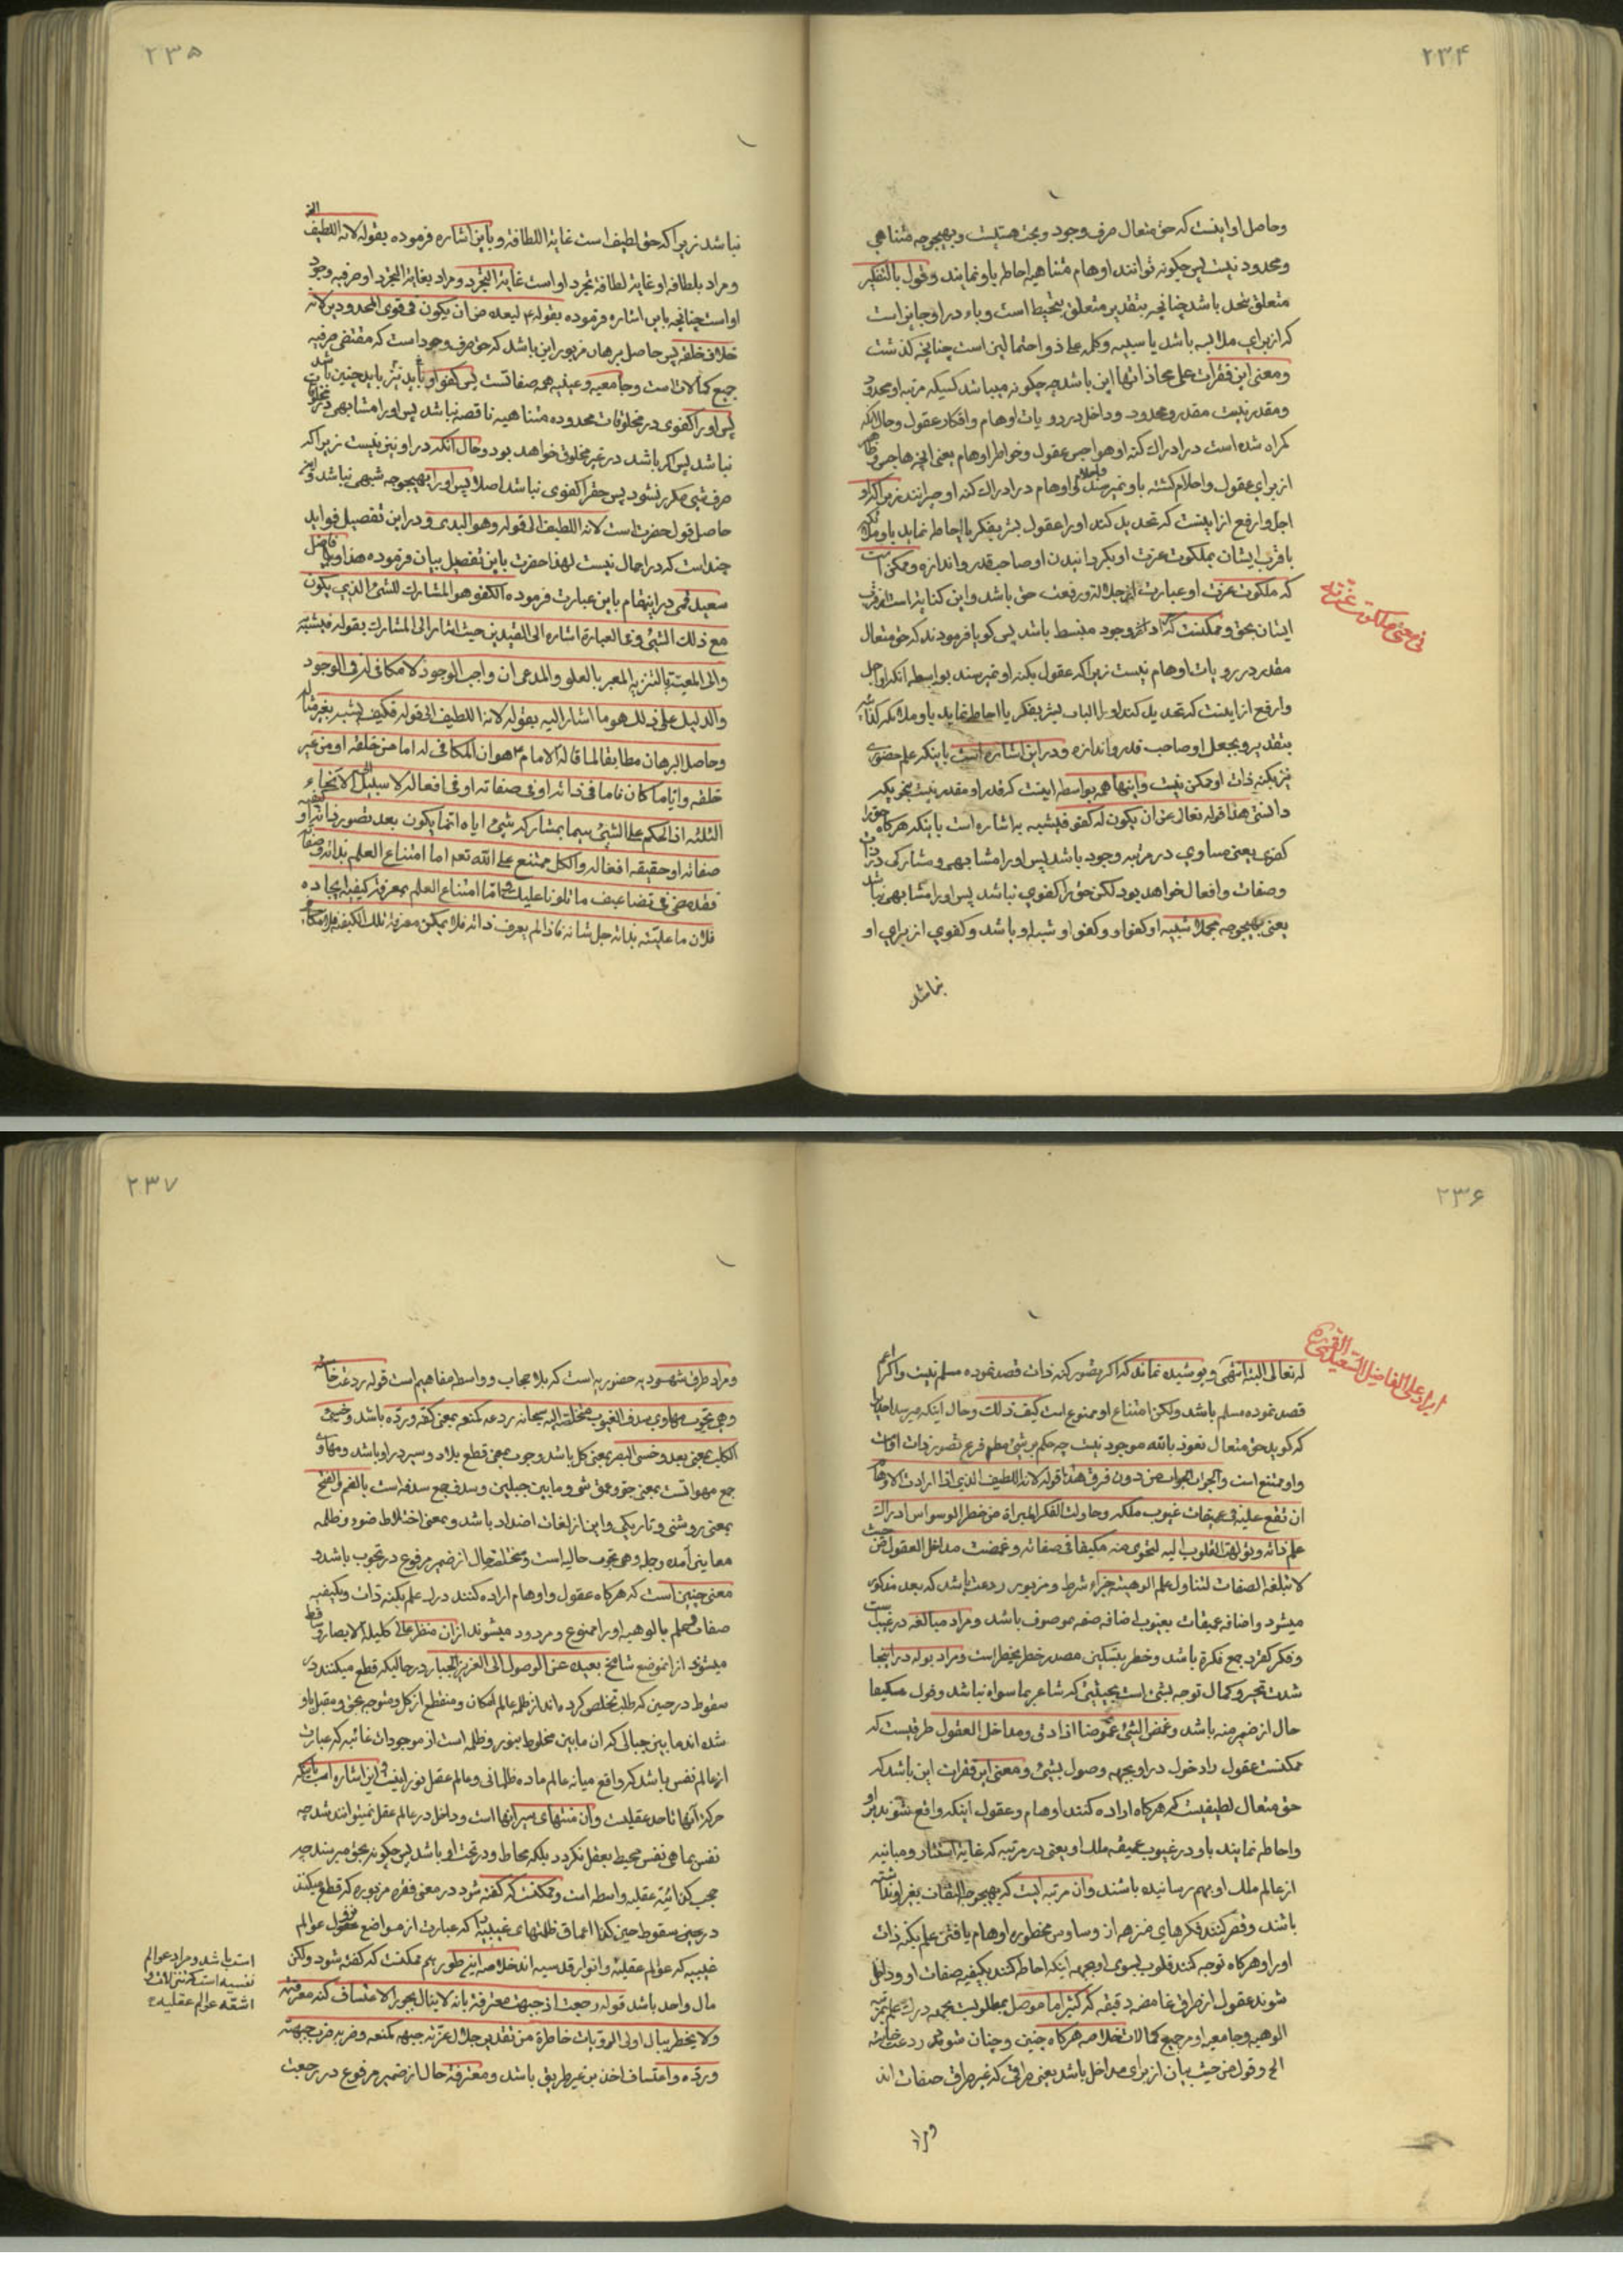 ۲۳۴
وحاصل او اینست که حق متعال صرف وجود و بحت هستیست و بهیچوجه متناهی
ومحدود نیست پس چکونه توانند اوهام متناهیه احاطه باو نمایند وقول بالتفکیر
متعلق بتحد باشد چنانچه بتقدیر متعلق بتحیط است وباء در او جایز است
که از برای ملابسه باشد یا سببیه وکلمه علی ذو احتمالین است چنانچه کذشت
ومعنی این فقرات علی محاذاتها این باشد چه چکونه میباشد کسیکه مرتبه او محدود
ومقدر نیست مقدر ومحدود وداخل در رویات اوهام وافکار عقول وحال آنکه
کمراه شده است در ادراک کنه او هواجس عقول وخواطر اوهام یعنی انچه هاجس
از برای عقول واحلام کشته باو نمیرسند اوهام در ادراک کنه او حیرانند زیرا که او
اجل وارفع از اینست که تحدید کند او را عقول بشر بفکر یا احاطه نماید باو ملائکه
با قرب ایشان بملکوت عزت او بکردانیدن او صاحب قدر واندازه وممکن است
که ملکوت عزت او عبارت از جلالة ورفعت حق باشد واین کنایة است از قرب
ایشان بحق وممکنست که وجود منبسط باشد پس کویا فرمودند که حق متعال
مقدر در رویات اوهام نیست زیرا که عقول بکنه او نمیرسند بواسطه آنکه او اجل
وارفع از اینست که تحدید کند او را الباب بشر بفکر یا احاطه نماید باو ملائکه
بتقدیر وبجعل او صاحب قدر واندازه ودر این اشاره است باینکه علم حضوری
نیز بکنه ذات او ممکن نیست واینها همه بواسطه اینست که قدر او مقدر نیست
دانستی هذا قوله تعالی عن ان یکون له کفو فیشبه به اشاره است باینکه هرکاه حق را
کفوی یعنی مساوی در مرتبه وجود باشد پس او را مشابهی ومشارکی در ذات
وصفات وافعال خواهد بود لکن حق را کفوی نباشد پس او را مشابهی نباشد
یعنی بهیچوجه مجملا شبیه او کفو او وکفو او شبه او باشد وکفوی از برای او
نباشد
فی معنی ملکوت عزته
۲۳۵
نباشد زیرا که حق لطیف است غایة اللطافة وباین اشاره فرموده بقوله لانه اللطیف
ومراد بلطافه او غایة لطافة تجرد او است غایة التجرد ومراد بغایة التجرد او صرفیه وجود
او است چنانچه باین اشاره فرموده بقوله ۴ لبعده من ان یکون فی قوی المحدودین لانه
خلاف خلقه پس حاصل برهان مزبور این باشد که حق صرف وجود است که مقتضی صرفیه
جمیع کمالات است وجامعیه وعینیه همه صفاتست پس کفو او نیز باید چنین باشد
پس او را کفوی در مخلوقات محدوده متناهیه ناقصه نباشد پس او را مشابهی در
نباشد پس اکر باشد در غیر مخلوق خواهد بود وحال آنکه در او نیز نیست زیرا که
صرف شئ مکرر نشود پس حق را کفوی نباشد اصلا پس او را بهیچوجه شبهی نباشد
حاصل قول حضرتست لانه اللطیف الی قوله وهو البدئ ودر این تفصیل فواید
چند است که در اجمال نیست لهذا حضرت باین تفصیل بیان فرموده هذا
سعید قمی در اینمقام باین عبارت فرموده الکفو هو المشارک للشئ الذی یکون
مع ذلک الشئ وفی العبارة اشارة الی القیدین حیث اشار الی المشارک بقوله فیشبه
والی المعیة بالتنزیه المعبر بالعلو والمدعی ان واجب الوجود لا مکافی له فی الوجود
والدلیل علی ذلک هو ما اشار الیه بقوله لانه اللطیف الی قوله فکیف یشبه بغیر مثاله
وحاصل البرهان مطابقا لما قاله الامام ۴ هو ان المکافی له اما من خلقه او من غیر
خلقه وایاما کان فاما فی ذاته او فی صفاته او فی افعاله لا سبیل الی الانحاء
الثلثة اذ الحکم علی الشئ سیما بمشارکة شئ ایاه انما یکون بعد تصور ذاته او
صفاته او حقیقة افعاله والکل ممتنع علی الله تعم اما امتناع العلم بذاته
فقد مضی فی تضاعیف ما تلونا علیک واما امتناع العلم بمعرفة کیفیة ایجاده
فلان ما علیته بذاته جل شانه فاذا لم یعرف ذاته فلا یمکن معرفة تلک الکیفیة
۲۳۶
له تعالی البتة انتهی وپوشیده نماند که اکر تصور کنه ذات قصد نموده مسلم نیست واکر اعم
قصد نموده مسلم باشد ولکن امتناع او ممنوع است کیف ذلک وحال اینکه
که کوید حق متعال نعوذ بالله موجود نیست چه حکم بر شئ مطم فرع تصور ذات اوست
واو ممتنع است والجواب الجواب من دون فرق هذا قوله لانه اللطیف الذی اذا ارادت الاوهام
ان تقع علیه فی عمیقات غیوب ملکه وحاولت الفکر المبراة من خطر الوسواس ادراک
علم ذاته وتولهت القلوب الیه لتحوی منه مکیفا فی صفاته وغمضت مداخل العقول من حیث
لا تبلغه الصفات لتناول علم الوهیته جزاء شرط ومزبور ردعت باشد که بعد مذکور
میشود واضافه عمیقات بغیوب اضافه صفه بموصوف باشد ومراد مبالغه در غیب است
وفکر کفرد جمع فکرة باشد وخطر بتسکین مصدر خطر یخطر است ومراد بوله در اینجا
شدت تحیر وکمال توجه بشئ است بحیثیتی که شاعر بما سواه نباشد وقول مکیفا
حال از ضمیر منه باشد وغمض الشئ غموضا اذا دق ومداخل العقول طرقیست که
ممکنست عقول را دخول در او بجهه وصول بشئ ومعنی این فقرات این باشد که
حق متعال لطیفیست که هرکاه اراده کنند اوهام وعقول اینکه واقع شوند بر او
واحاطه نمایند باو در غیوب عمیقه ملک او یعنی در مرتبه که غایة استتار ومباینه
از عالم ملک او بهم رسانیده باشند وان مرتبه ایست که بهیچوجه التفات بغیر او نداشته
باشند وقصر کنند فکرهای منزهه از وساوس مخطوره اوهام یافتن علم بکنه ذات
او را وهرکاه توجه کنند قلوب بسوی او بجهه اینکه احاطه کنند بکیفیه صفات او وداخل
شوند عقول از طرق غامضه دقیقه که کثیرا ما موصل بمطلوبست بجهه درک علم بمرتبه
الوهیه وجامعیه او مر جمیع کمالات خلاصه هرکاه چنین وچنان شوند ردعت خاسئه
الخ وقول من حیث بیان از برای مداخل باشد یعنی طرقی که غیر طرق صفات اند
ومراد
ایراد علی الفاضل السعید القمی ره
۲۳۷
ومراد طرق شهودیه حضوریه است که بلا حجاب وواسطه مفاهیم است قوله ردعت خاسئه
وهی تجوب مهاوی سدف الغیوب متخلصة الیه سبحانه ردعه کمنعه بمعنی کفه ورده باشد وخسئ
الکلب بمعنی بعد وخسئ البصر بمعنی کل باشد وجوب بمعنی قطع بلاد وسیر در او باشد ومهاوی
جمع مهواتست بمعنی جو وعمق شئ وما بین جبلین وسدف جمع سدفه است بالضم والفتح
بمعنی روشنی وتاریکی واین از لغات اضداد باشد وبمعنی اختلاط ضوء وظلمه
معاینی آمده وجمله وهی تجوب حالیه است ومتخلصة حال از ضمیر مرفوع در تجوب باشد و
معنی چنین است که هرکاه عقول واوهام اراده کنند درک علم بکنه ذات وبکیفیه
صفات وعلم بالوهیه او را ممنوع ومردود میشوند از ان منظر عالی کلیلة الابصار
میشوند از انموضع شامخ بعیده عن الوصول الی العزیز الجبار در حالیکه قطع میکنند در
سقوط در حین که طلب تخلص کرده اند از ظلمه عالم امکان ومنقطع از کل ومتوجه بحق ومقبل باو
شده اند ما بین جبالی که ان ما بین مخلوط بنور وظلمه است از موجودات غائبه که عبارت
از عالم نفس باشد که واقع میانه عالم ماده ظلمانی وعالم عقل نورانیست واین اشاره است باینکه
حرکة آنها تا حد عقلیت وآن منتهای سیر انها است وداخل در عالم عقل نمیتوانند شد چه
نفس بما هی نفس محیط بعقل نکردد بلکه محاط ودر تحت او باشد پس چکونه بحق میرسند چه
حجب کذائیه عقلیه واسطه است وممکنست که کفته شود در معنی فقره مزبوره که قطع میکنند
در حین سقوط حین کذا اعماق ظلمتهای غیبیه را که عبارت از مواضع نزول عوالم
غیبیه که عوالم عقلیة وانوار قدسیه اند خلاصه اینطور هم ممکنست که کفته شود ولکن
مال واحد باشد قوله رجعت اذ جبهت معترفة بانه لا ینال بجور الاعتساف کنه معرفته
ولا یخطر ببال اولی الرویات خاطرة من تقدیر جلال عزته جبهه کمنعه وضربه ضرب جبهته
ورده واعتساف اخذ بر غیر طریق باشد ومعترفة حال از ضمیر مرفوع در رجعت
است باشد ومراد عوالم
نفسیه است که تنزلات و
اشعه عوالم عقلیه